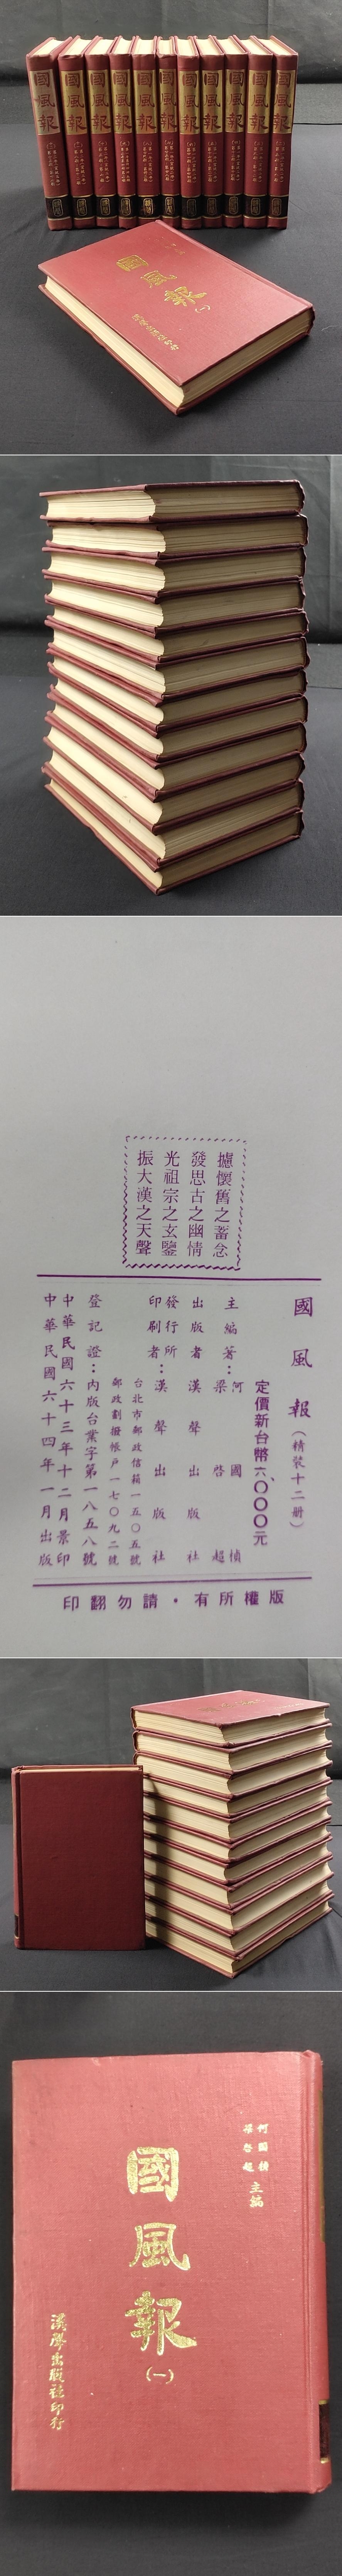 國風報
國風報
國風報
國風報
國風報
國風報
國風報
國風報
國風報
國風報
國風報
國風報
(一)
漢聲出版社印行
攄懷舊之蓄念
發思古之幽情
光祖宗之玄鑒
振大漢之天聲
國風報(精裝十二册)
定價新台幣六、〇〇〇元
主編著：何國楨
梁啓超
出版者 漢聲出版社
發行所
印刷者：漢聲出版社
台北市郵政信箱一五〇五號
郵政劃撥帳戶一七〇九二號
登記證：內版台業字第一八五八號
中華民國六十三年十二月景印
中華民國六十四年一月出版
版權所有·請勿翻印
何國楨
梁啓超
主編
國風報
(一)
漢聲出版社印行